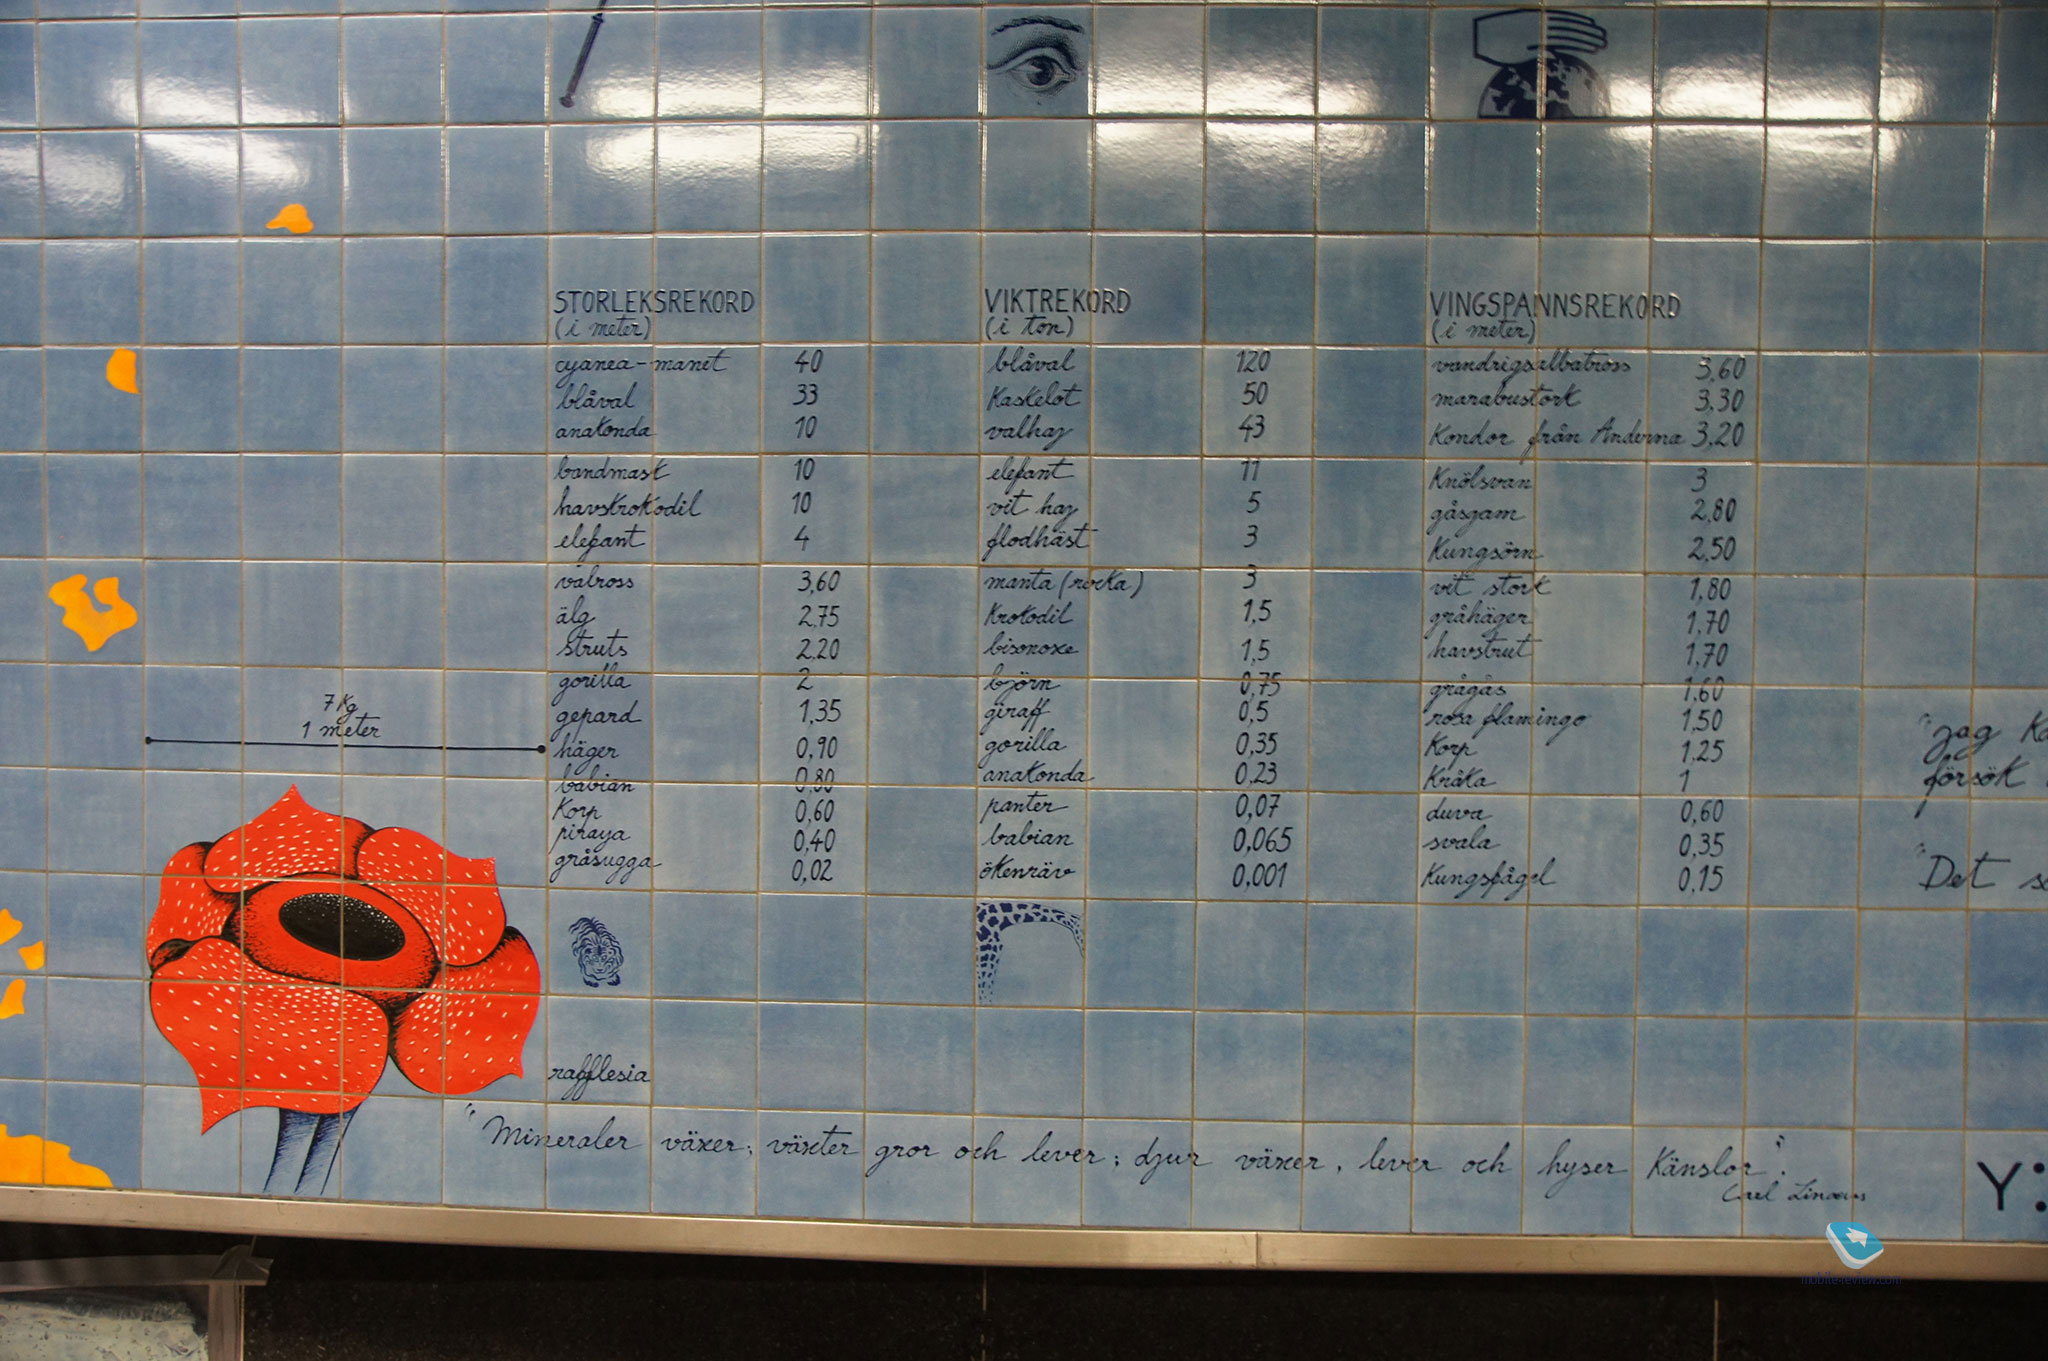 STORLEKSREKORD
(i meter)
cyanea-manet 40
blåval 33
anakonda 10
bandmask 10
havskrokodil 10
elefant 4
valross 3,60
älg 2,75
struts 2,20
gorilla 2
gepard 1,35
häger 0,90
babian 0,80
Korp 0,60
piraya 0,40
gråsugga 0,02
VIKTREKORD
(i ton)
blåval 120
Kaskelot 50
valhaj 43
elefant 11
vit haj 5
flodhäst 3
manta (rocka) 3
Krokodil 1,5
bisonoxe 1,5
björn 0,75
giraff 0,5
gorilla 0,35
anakonda 0,23
panter 0,07
babian 0,065
ökenräv 0,001
VINGSPANNSREKORD
(i meter)
vandrigsalbatross 3,60
marabustork 3,30
Kondor från Anderna 3,20
Knölsvan 3
gåsgam 2,80
Kungsörn 2,50
vit stork 1,80
gråhäger 1,70
havstrut 1,70
grågås 1,60
rosa flamingo 1,50
Korp 1,25
Kråka 1
duva 0,60
svala 0,35
Kungsfågel 0,15
7 Kg
1 meter
rafflesia
"jag Ka
försök
"Det s
"Mineraler växer; växter gror och lever; djur växer, lever och hyser Känslor".
Carl Linæus
Y:
mobile-review.com